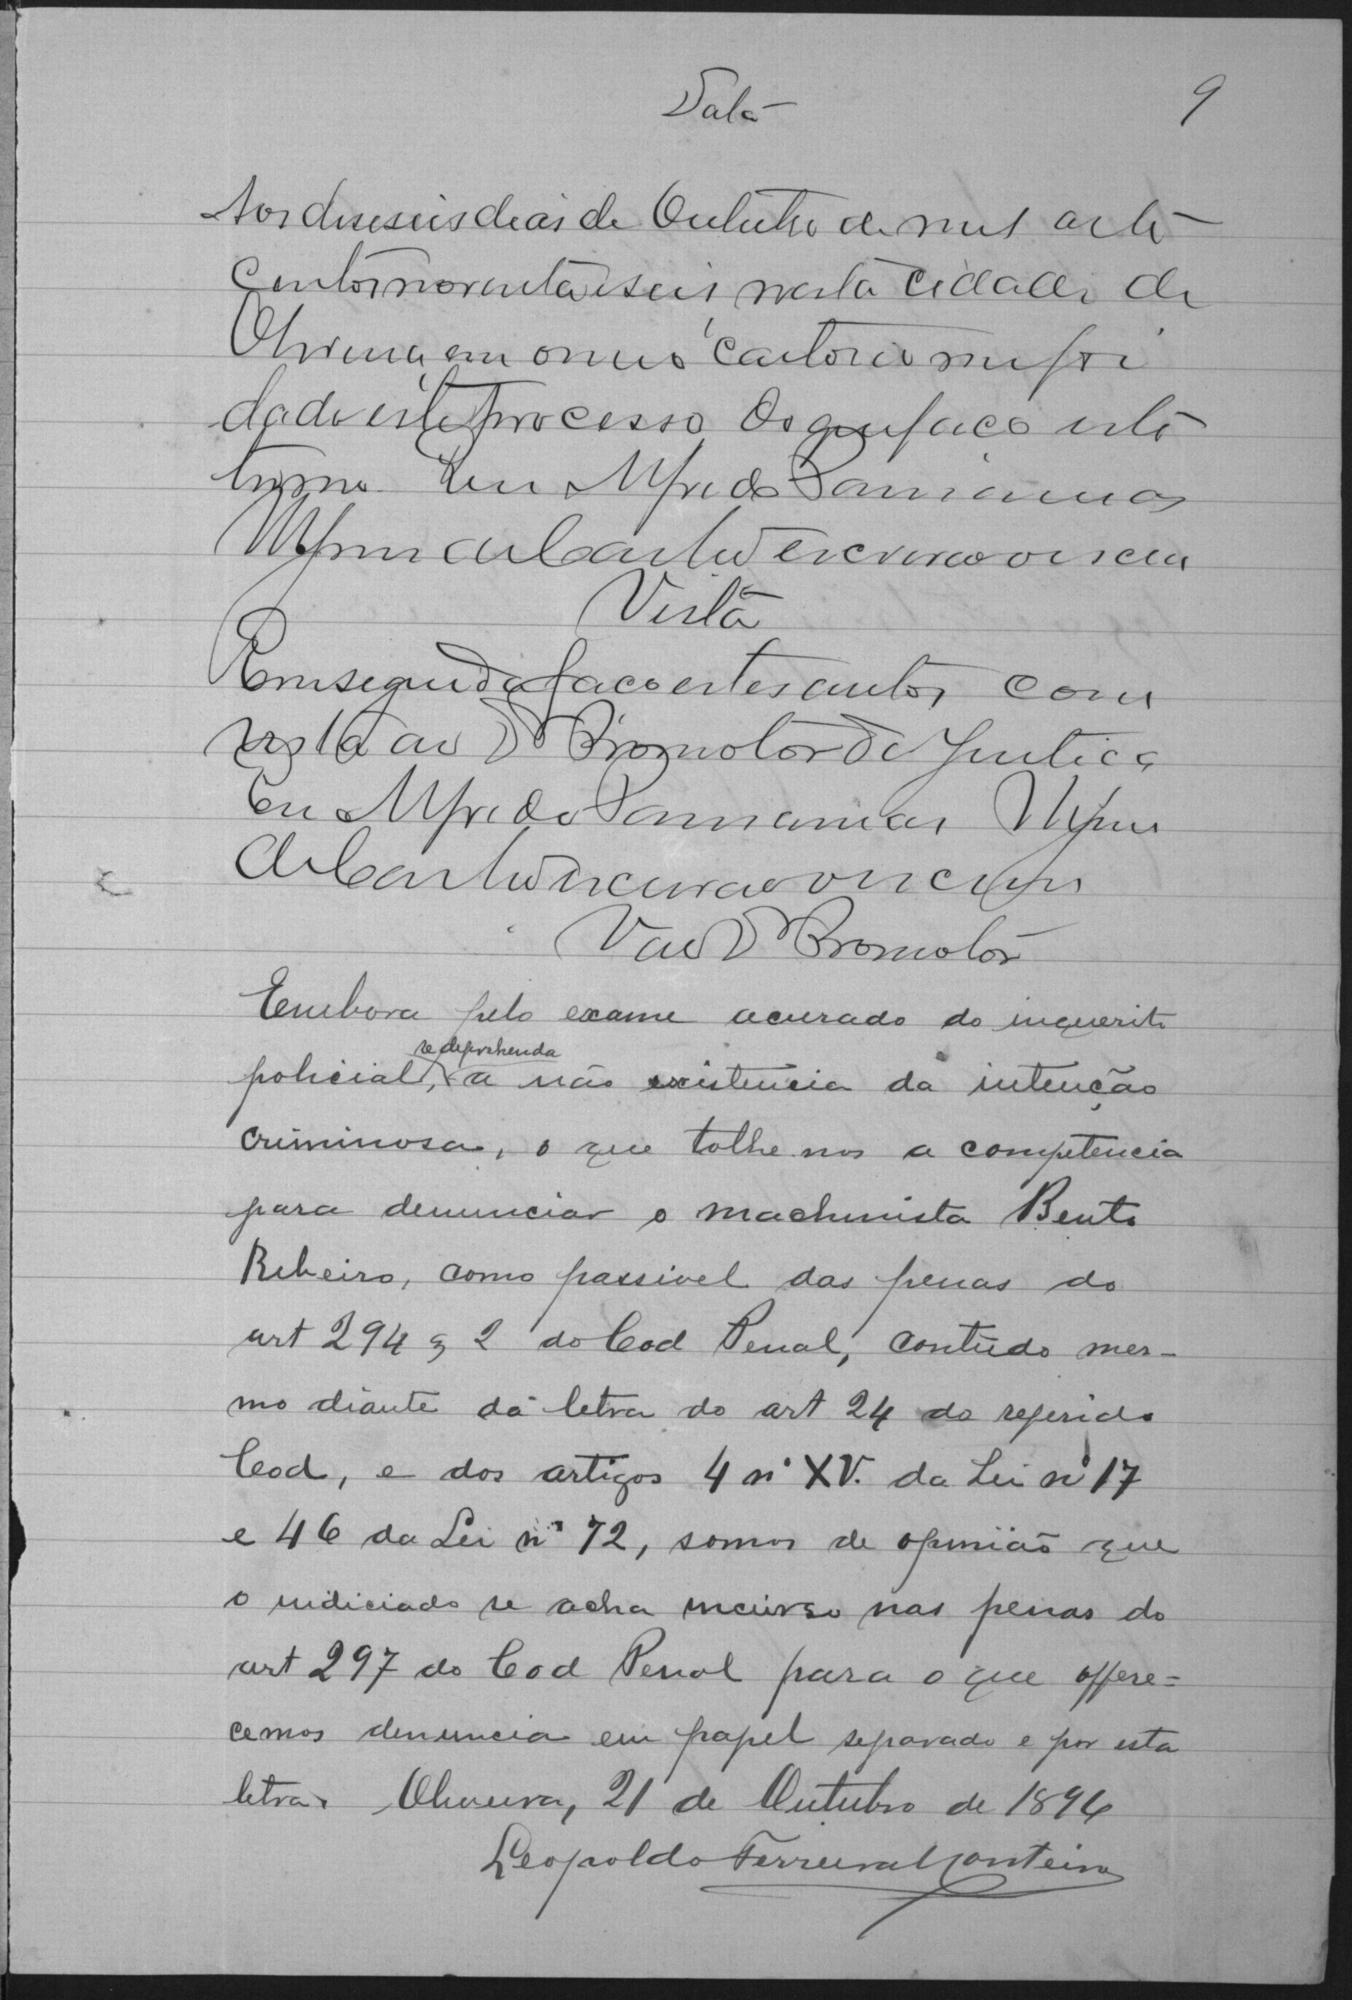 Data
9
Aos deseseis dias de Outubro de mil oito
centos noventa e seis, nesta cidade de
Oliveira, em o meu cartorio me foi
dado este processo do que faço este
termo Eu Alfredo
de Castro escrivão o escrevi
Vista
Em seguida faço estes autos com
vista ao Dr Promotor de Justiça
Eu Alfredo
de Castro escrivão o escrevi
V ao Dr Promotor
Embora pelo exame acurado do inquerito
se deprehenda
policial, a não existencia da intenção
criminosa, o que tolhe nos a competencia
para denunciar o machinista Bento
Ribeiro, como passivel das penas do
art 294 § 2 do Cod Penal, contudo mes-
mo diante da letra do art 24 do referido
Cod, e dos artigos 4 nº XV. da Lei nº 17
e 46 da Lei nº 72, somos de opinião que
o indiciado se acha incurso nas penas do
art 297 do Cod Penal para o que offere=
cemos denuncia em papel separado e por esta
letra. Oliveira, 21 de Outubro de 1896
Leopoldo Ferreira Monteiro